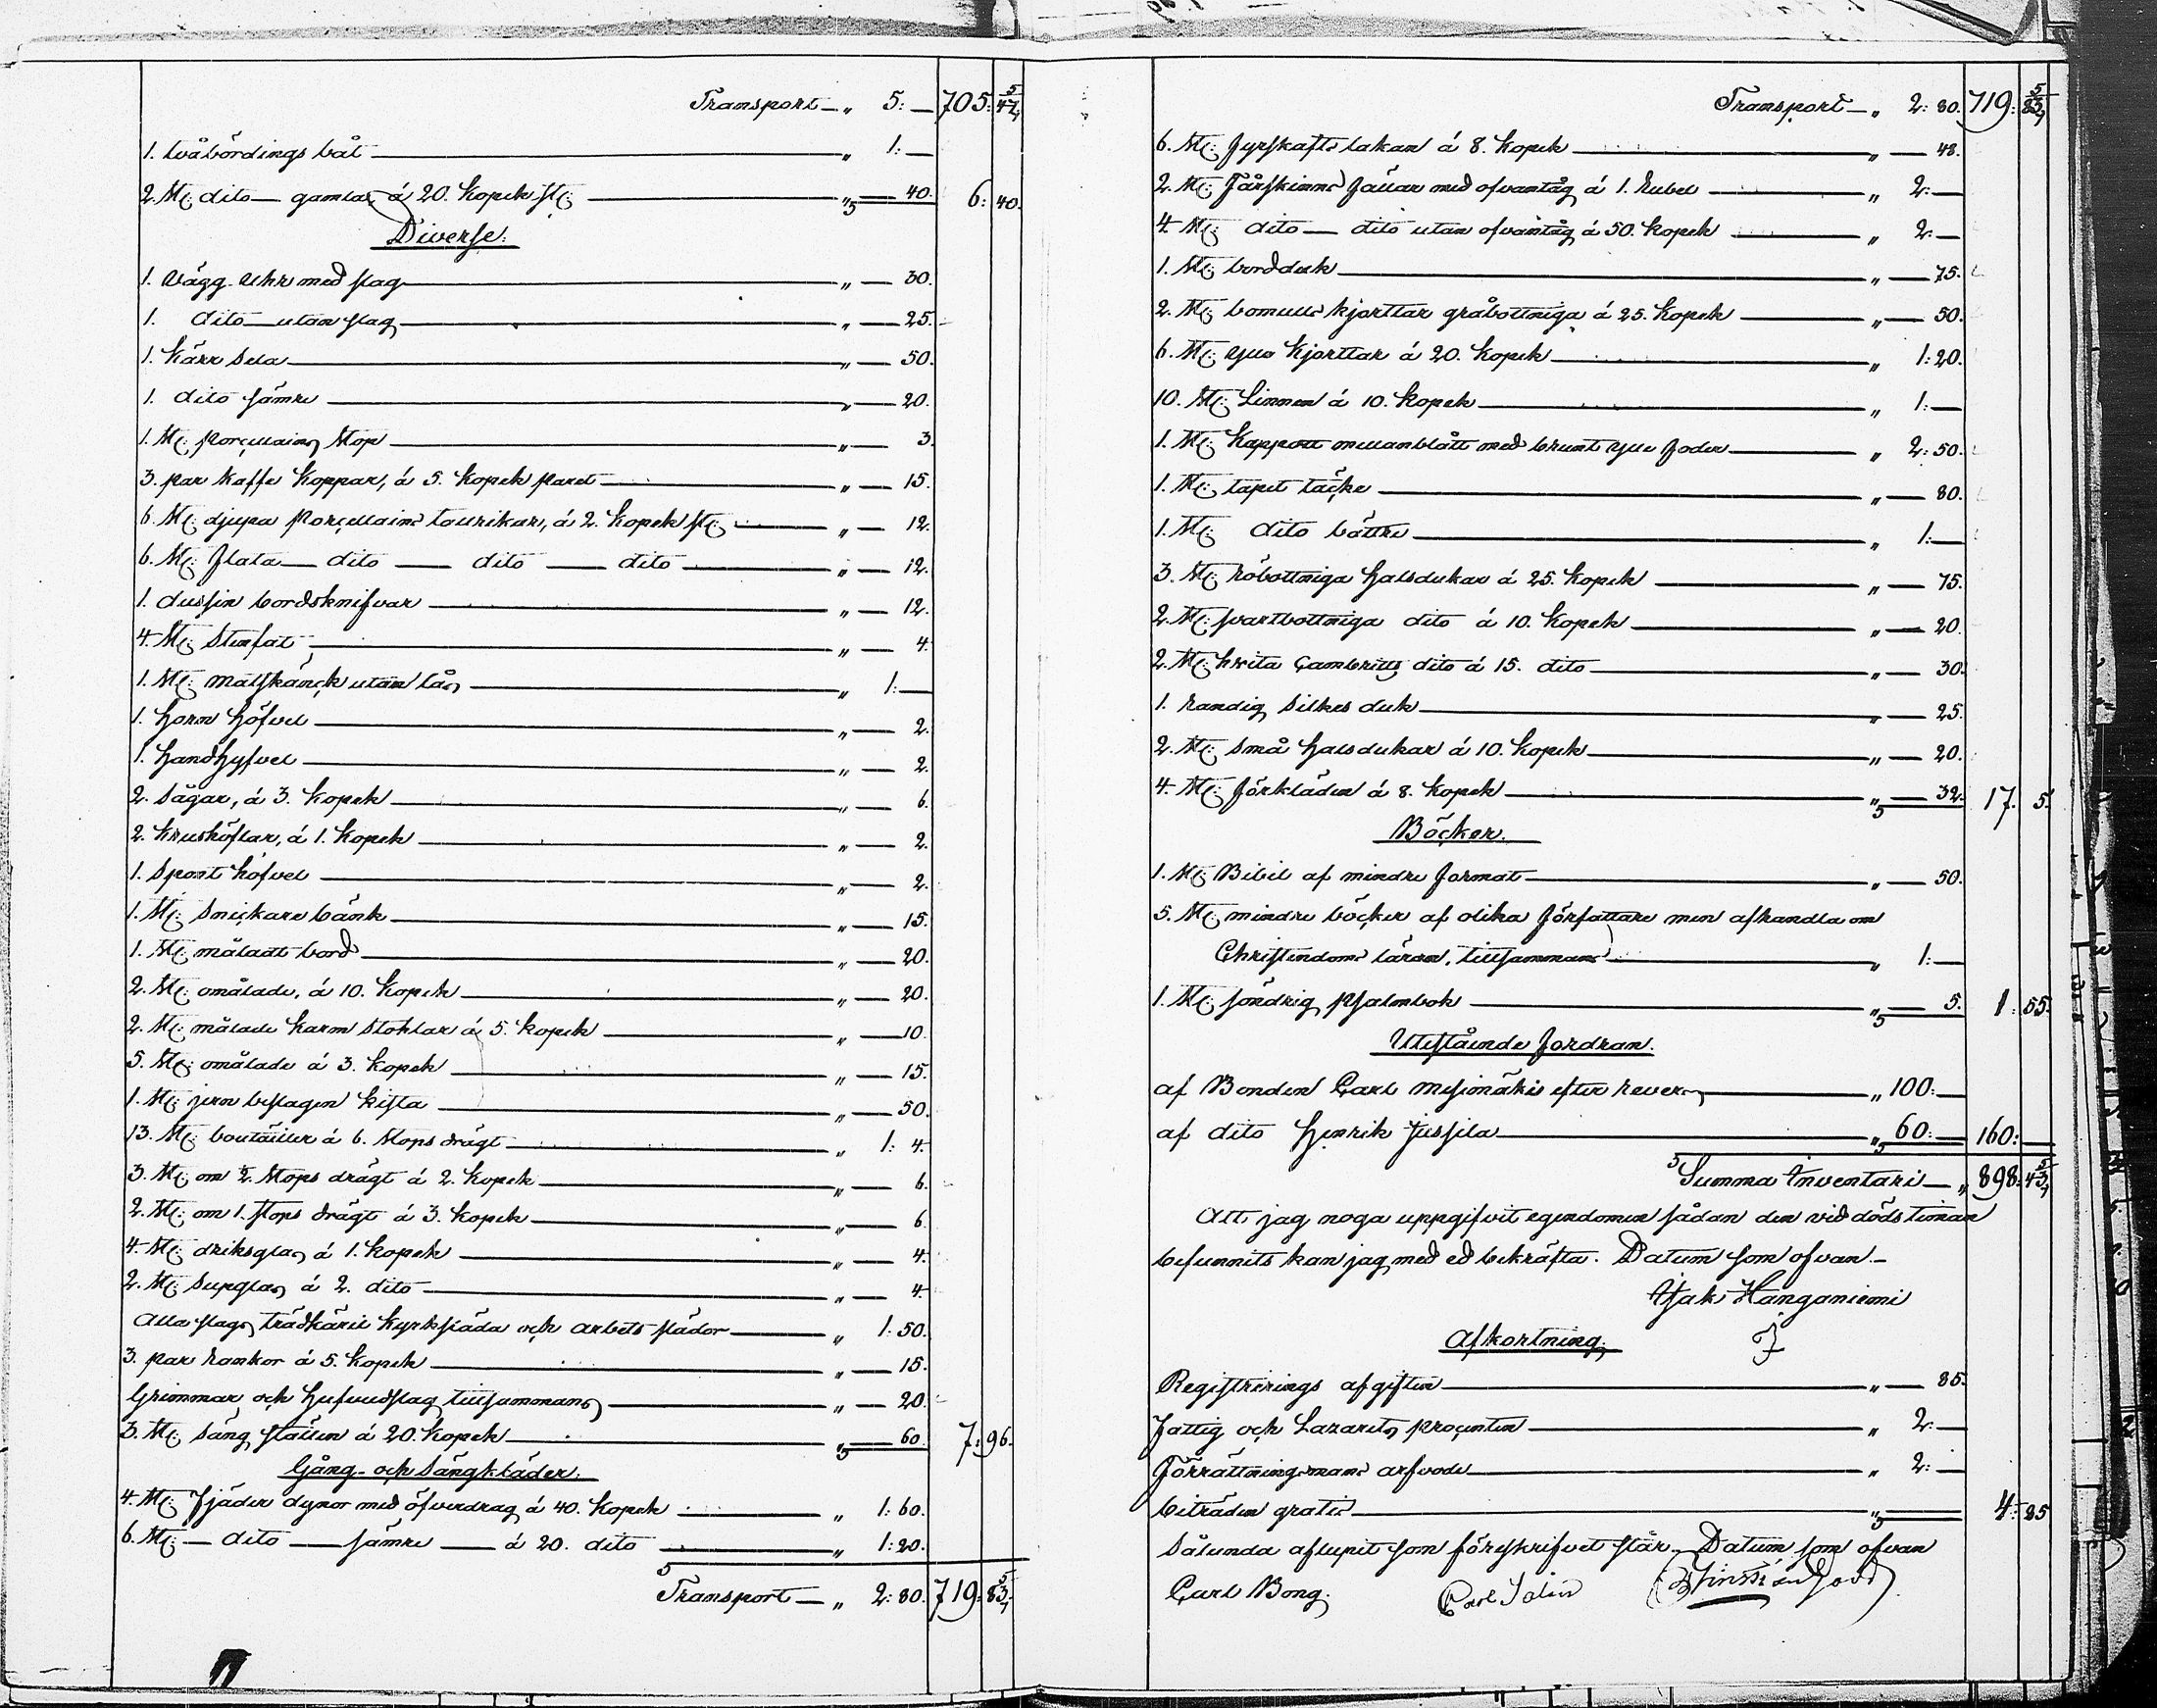 Transport — „ 5: — 705: 47 5/7
1. tvåbördings båt — „ 1: —
2. St: dito — gamla á 20. Kopek st: — „ — 40. 6: 40.
Diverse.
1. Vägg Uhr med slag — „ — 30.
1. dito utan slag — „ — 25.
1. Kärr Sela — „ — 50.
1. dito sämre — „ — 20.
1. St: Porcellains Stop — „ — 3.
3. par Kaffe Koppar, á 5. Kopek paret — „ — 15.
6. St: djupa Porcellains tallrikar, á 2. Kopek st: — „ — 12.
6. St: flata — dito — dito — dito — „ — 12.
1. dussin bordsknifvar — „ — 12.
4. St: Stenfat — „ — 4.
1. St: Matskänck utan lås — „ 1: —
1. Horn Höfvel — „ — 2.
1. Handhyfvel — „ — 2.
2. Sågar, á 3. Kopek — „ — 6.
2. Krushöflar, á 1. Kopek — „ — 2.
1. Spont höfvel — „ — 2.
1. St: Snickare bänk — „ — 15.
1. St: måladt bord — „ — 20.
2. St: omålade, á 10. Kopek — „ — 20.
2. St: målade Karm Stohlar á 5. Kopek — „ — 10.
5. St: omålade á 3. Kopek — „ — 15.
1. St: jern beslagen Kista — „ — 50.
13. St: boutäiller á 6. Stops drägt — „ 1: 4.
3. St: om ½ Stops drägt á 2. Kopek — „ — 6.
2. St: om 1. Stops drägt á 3. Kopek — „ — 6.
4. St: driksglas á 1. Kopek — „ — 4.
2. St: Supglas á 2. dito — „ — 4.
Alla slags trädkäril Kyrksläda och arbets slädor — „ 1: 50.
3. par rankor á 5. Kopek — „ — 15.
Grimmar och Hufvudslag tillsammans — „ — 20.
3. St: Säng ställen á 20. Kopek — „ — 60. 7: 96.
Gång- och Sängkläder.
4. St: Fjäder dynor med öfverdrag á 40. Kopek — „ 1: 60.
6. St: — dito — sämre — á 20. dito — „ 1: 20.
Transport — „ 2: 80. 719: 83 5/7
Transport — „ 2: 80. 719: 83 5/7
6. St: fyrskafts lakan á 8. Kopek — „ — 48.
2. St: Fårskinns fällar med ofvantåg á 1. Rubel — „ 2: —
4. St: dito — dito utan ofvantåg á 50. Kopek — „ 2: —
1. St: bordduk — „ — 75.
2. St: bomulls kjortlar gråbottniga á 25. Kopek — „ — 50.
6. St: ylle Kjortlar á 20. Kopek — „ 1: 20.
10. St: Linnen á 10. Kopek — „ 1: —
1. St: Kappott mellanblått med brunt ylle foder — „ 2: 50.
1. St: tapit täcke — „ — 80.
1. St: dito bättre — „ 1: —
3. St: röbottniga halsdukar á 25. Kopek — „ — 75.
2. St: svartbottniga dito á 10. Kopek — „ — 20.
2. St: hvita Cambritts dito á 15. dito — „ — 30.
1. randig Silkes duk — „ — 25.
2. St: Små halsdukar á 10. Kopek — „ — 20.
4. St: förkläden á 8. Kopek — „ — 32. 17. 5.
Böcker.
1. St: Bibel af mindre format — „ — 50.
5. St: mindre böcker af olika författare men afhandla om
Christendoms läran, tillsammans — „ 1: —
1. St: söndrig Psalmbok — „ — 5. 1: 55.
Utestående fordran.
af Bonden Carl Mesionäkis efter revers — „ 100: —
af dito Henrik Jussila — „ 60: — 160: —
Summa Inventari — „ 898: 43 5/7
Att jag noga uppgifvit egendomen sådan den vid döds timan
befunnits kan jag med ed bekräfta. Datum som ofvan. —
Isak Hanganiemi
Afkortning.
Registrerings afgiften — „ — 85.
Fattig och Lazarets procenten — „ 2: —
Förrättningsmans arfvode — „ 2: —
biträden gratis — „ — 4: 85
Sålunda aflupit som föreskrifvet står. Datum som ofvan
Carl Bong. Carl Salin